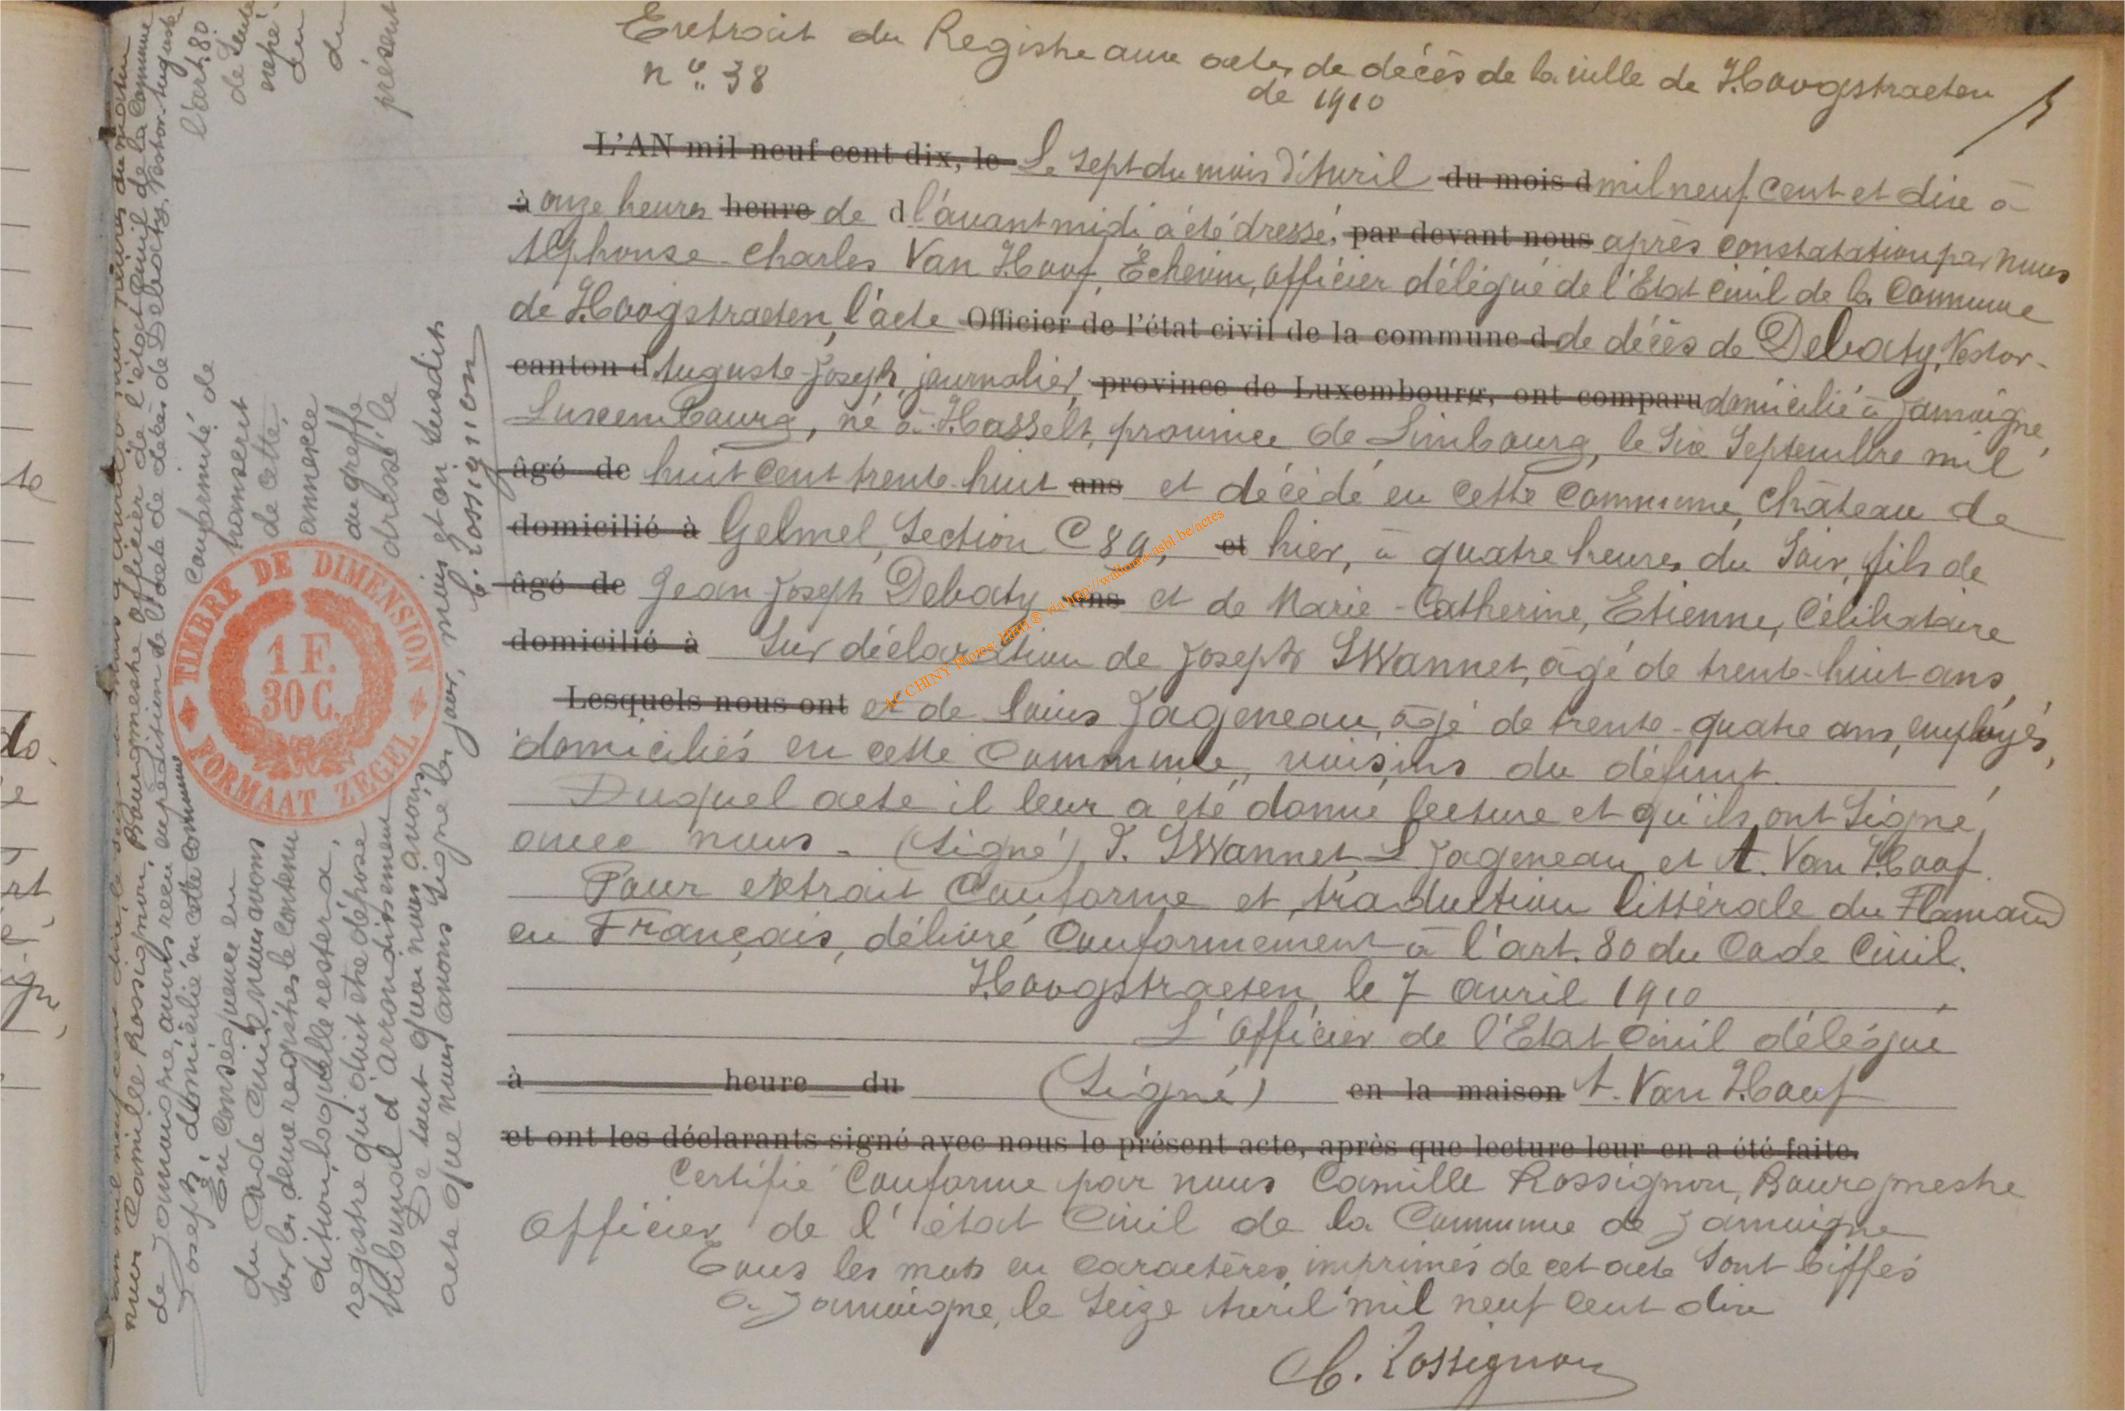 Extrait du Registre aux actes de décès de la ville de Hoogstraeten
n° 38
de 1910
L'AN mil neuf cent dix, le Le Sept du mois d'Avril du mois d mil neuf cent et dix à
à onze heures heure de d l'avant midi a été dressé, par devant nous après constatation par nous
Alphonse-Charles Van Hoof, Echevin, officier délégué de l'Etat Civil de la Commune
de Hoogstraeten, l'acte Officier de l'état civil de la commune d de décès de Debaty, Nestor-
canton d Auguste-Joseph, journalier, province de Luxembourg, ont comparu domicilié à Jamoigne,
Luxembourg, né à Hasselt, province de Limbourg, le Six Septembre mil
âgé de huit cent trente-huit ans et décédé en cette Commune, Château de
domicilié à Gelmel, Section C 89, et hier, à quatre heures du Soir, fils de
âgé de Jean-Joseph Debaty ans et de Marie-Catherine, Etienne, Célibataire
domicilié à Sur déclaration de Joseph SWannet, âgé de trente-huit ans,
Lesquels nous ont et de Louis Jageneau, âgé de trente-quatre ans, employés,
domiciliés en cette Commune, voisins du défunt.
Duquel acte il leur a été donné lecture et qu'ils ont Signé,
avec nous. (Signé) J. SWannet, L Jageneau et A. Van Hoof.
Pour extrait Conforme et traduction littérale du Flamand
en Français, délivré Conformement à l'art. 80 du Code Civil.
Hoogstraeten, le 7 avril 1910
L'officier de l'Etat Civil délégué
à heure du (Signé) en la maison A. Van Hoof
et ont les déclarants signé avec nous le présent acte, après que lecture leur en a été faite.
Certifié Conforme par nous Camille Rossignon, Bourgmestre
Officier de l'état Civil de la Commune de Jamoigne
Tous les mots en caractères imprimés de cet acte Sont biffés
à Jamoigne, le Seize Avril mil neuf cent dix
C. Rossignon
nous Camille Rossignon, Bourgmestre officier de l'état civil de la Commune
de Jamoigne, avons reçu expédition de l'acte de décès de Debaty, Nestor-Auguste
Joseph, domicilié en cette Commune
En Conséquence en conformité de l'art. 80
du Code Civil nous avons transcrit
Sur les deux registres le Contenu de cette
dition, laquelle restera, annexée
registre qui doit être déposé au greffe du
tribunal d'arrondissement dressé le présent
De tout quoi nous avons
acte que nous avons Signé les jour, mois et an susdits
C. Rossignon
TIMBRE DE DIMENSION
1 F.
30 C.
FORMAAT ZEGEL